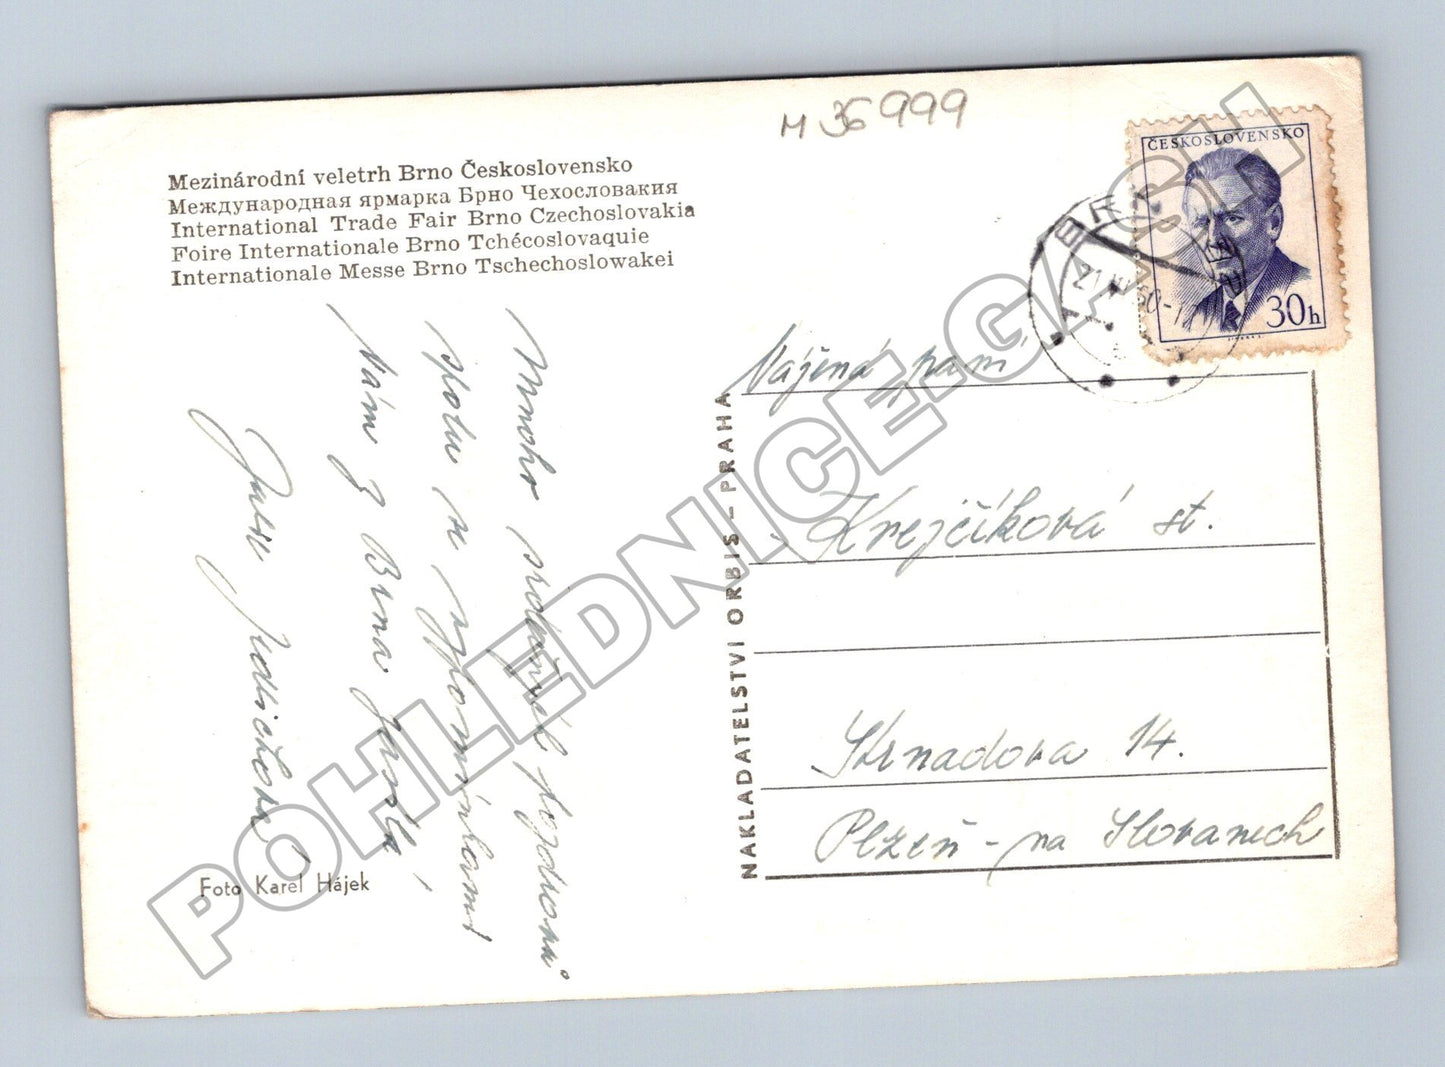 M 36999
Mezinárodní veletrh Brno Československo
Международная ярмарка Брно Чехословакия
International Trade Fair Brno Czechoslovakia
Foire Internationale Brno Tchécoslovaquie
Internationale Messe Brno Tschechoslowakei
ČESKOSLOVENSKO
30h
Mnoho srdečných pozdravů
spolu se vzpomínkami
Vám z Brna zasílá,
Foto Karel Hájek
NAKLADATELSTVÍ ORBIS – PRAHA
Vážená paní
Krejčíková st.
Strnadova 14.
Plzeň - na Slovanech
POHLEDNICE-GASCH